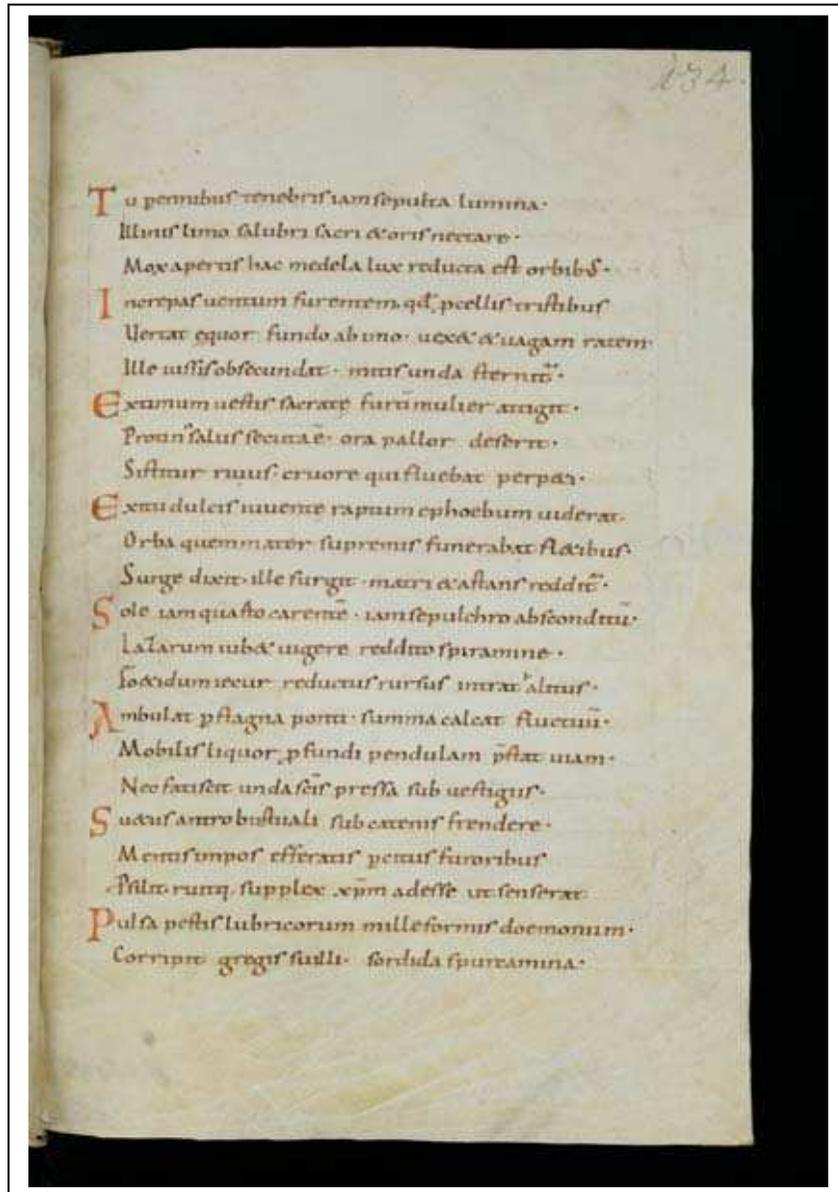 134.
Tu pennibus tenebris iam sepulta lumina·
Illinis limo salubri sacri & oris nectare·
Mox apertis hac medela lux reducta est orbib;·
Increpas uentum furentem, qd pcellis tristibus
Uertat equor fundo ab uno· uex& & uagam ratem·
Ille iussis obsecundat· mitis unda sternit̄·
Extimum uestis sacratę furtī mulier attigit·
Protin' salus secuta ē· ora pallor deserit·
Sistitur riuus· cruore qui fluebat perp&i·
Exitu dulcis iuuentę raptum ephoebum uiderat·
Orba quem mater supremis funerabat fl&ibus·
Surge dixit· ille surgit· matri & astans reddit̄·
Sole iam quarto carentē· iam sepulchro absconditū·
Lazarum iub& uigere reddito spiramine·
Fo&idum iecur reductus rursus intrat alitus·
Ambulat p stagna ponti· summa calcat fluctuū·
Mobilis liquor pfundi pendulam p̄stat uiam·
Nec fatiscit unda sc̄is pressa sub uestigiis·
Su&us antro bustuali sub catenis frendere·
Mentis impos efferatis pcitus furoribus
Psilit· ruitq, supplex xp̄m adesse ut senserat
Pulsa pestis lubricorum milleformis doemonum·
Corripit gregis suilli· sordida spurcamina·